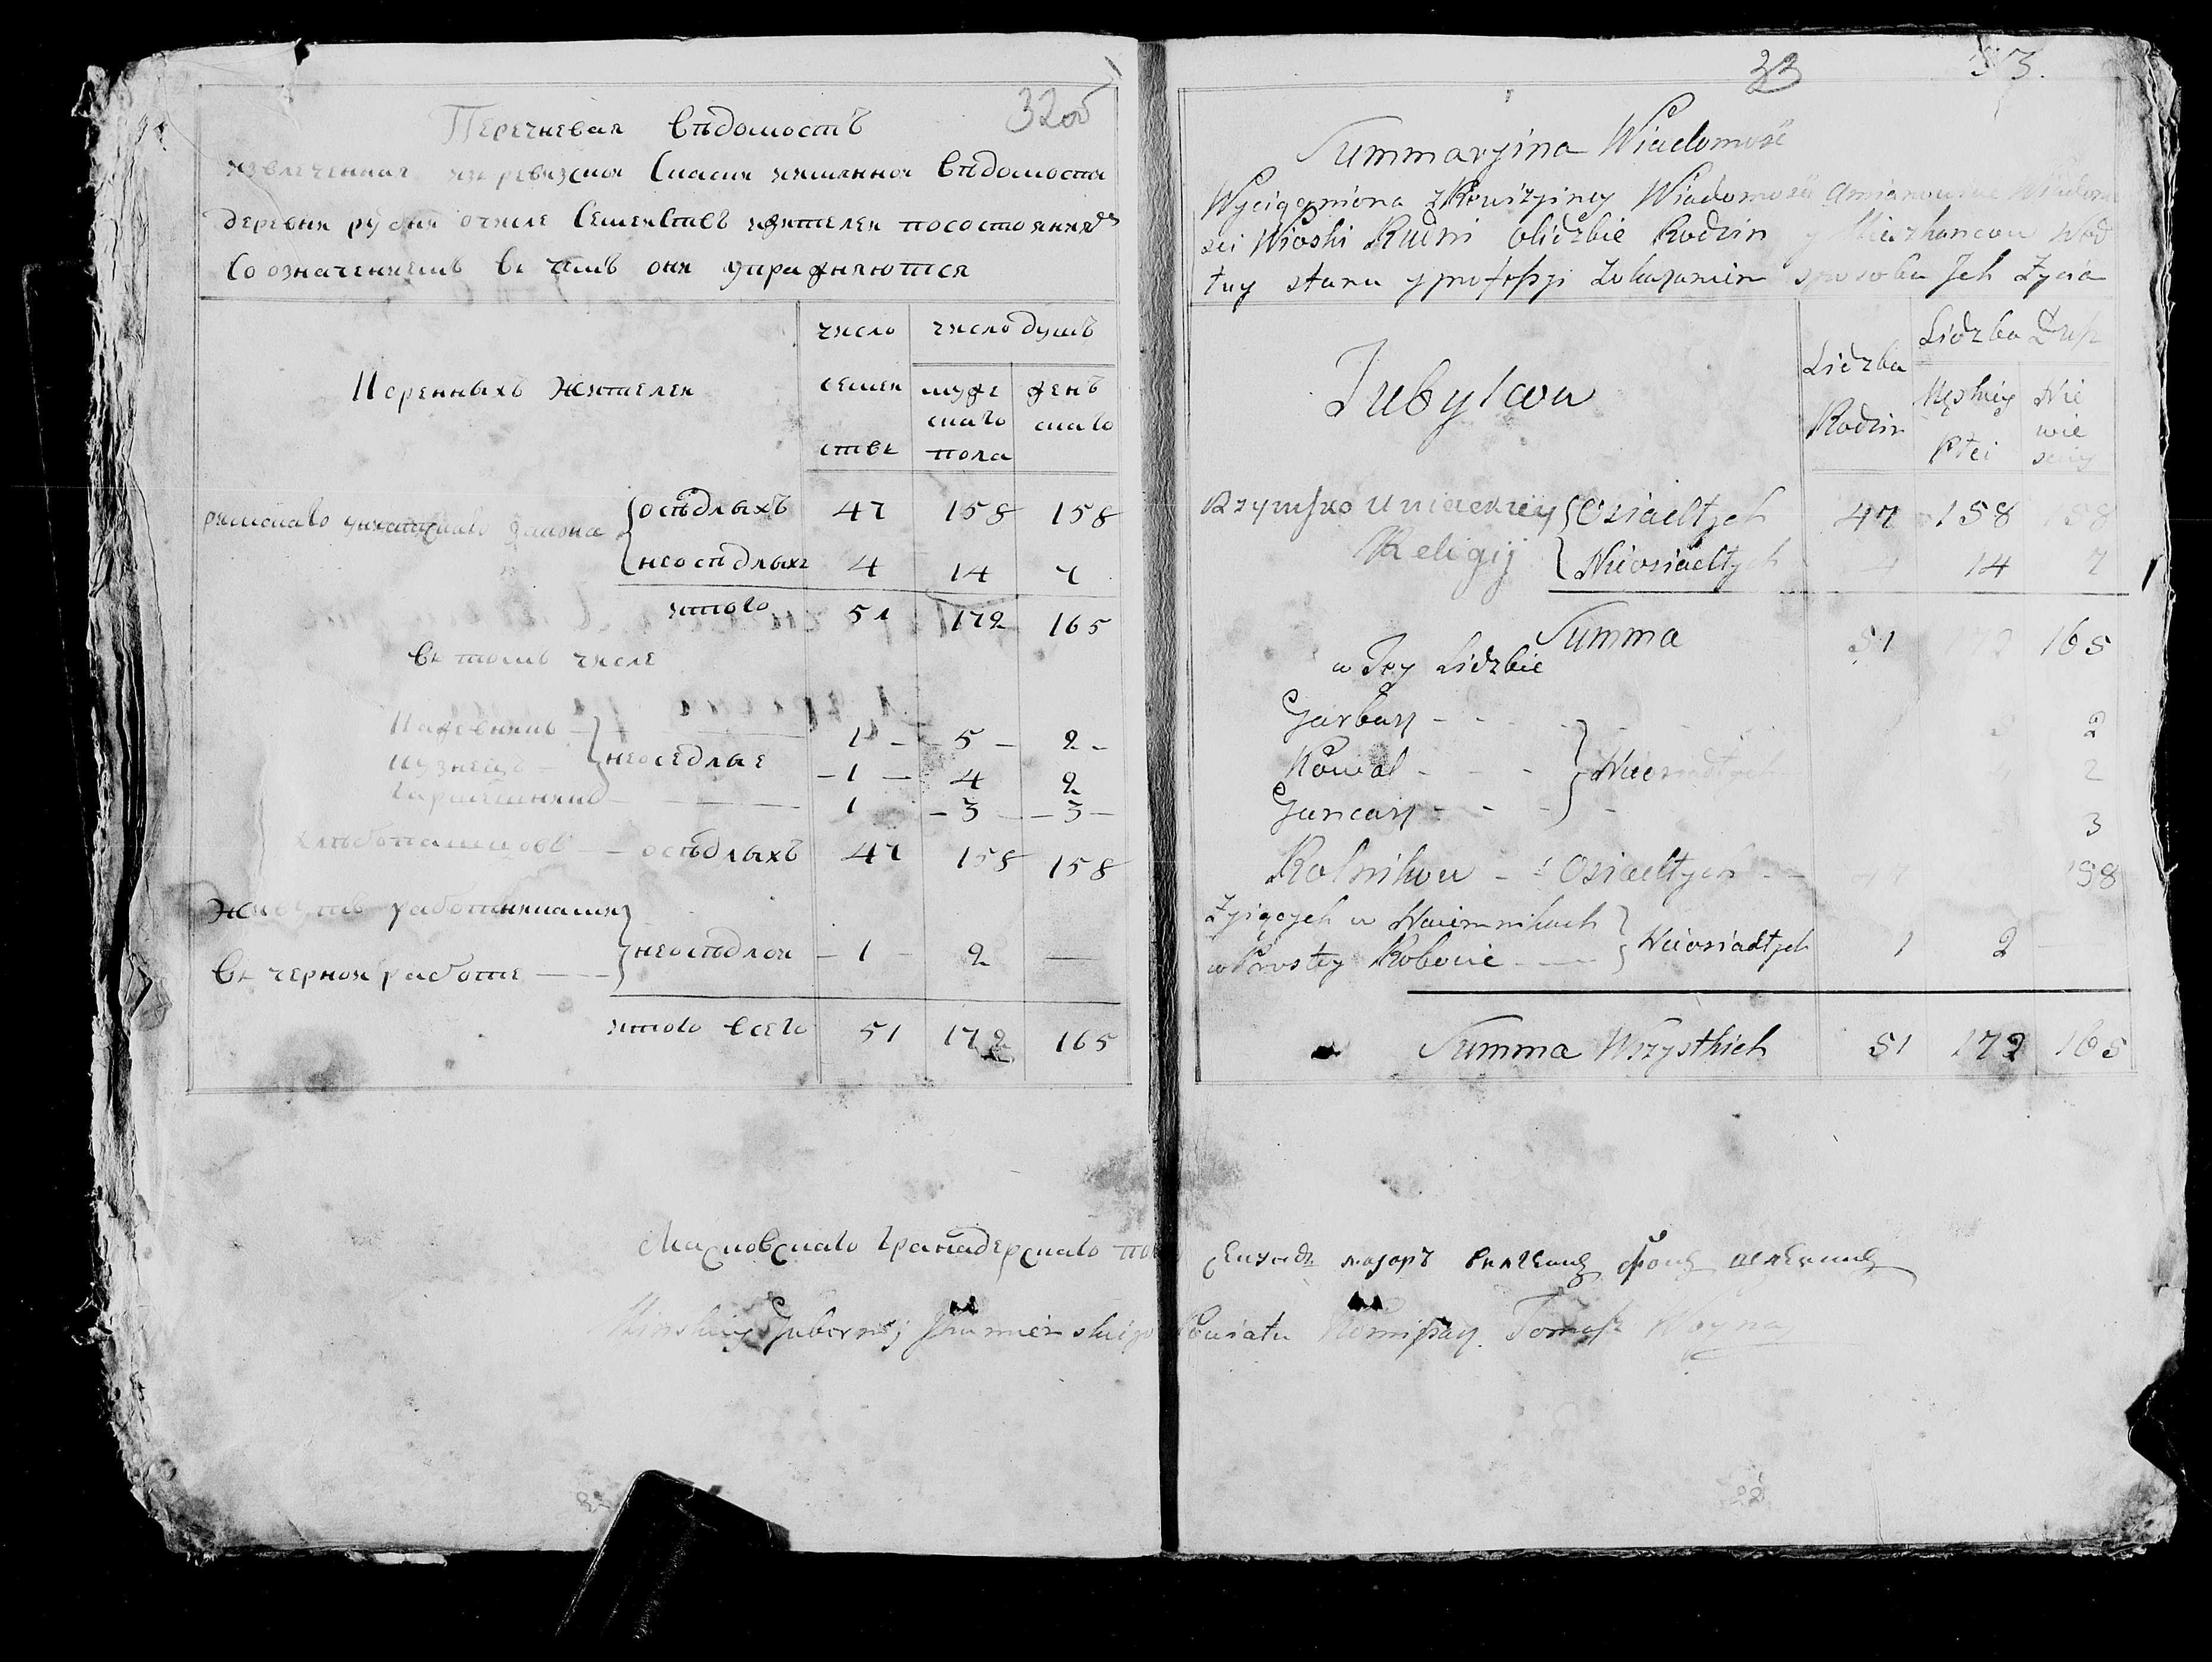 32 об
Перечневая вѣдомость
извлеченная из ревизской Сказки имянной вѣдомости
деревни рудни очисле Семействъ жителей посостоянию
Со означениемъ въ чемъ они упражняются
Коренныхъ жителей
число семействъ
число душъ
мужескаго пола
женскаго
римскаго униатскаго закона
осѣдлыхъ 47 158 158
неосѣдлыхъ 4 14 7
итого 51 172 165
въ томъ числе
Кажевникъ 1 5 2
Кузнецъ неоседлые 1 4 2
Гаршешникъ 1 3 3
хлѣбопашцовъ осѣдлыхъ 47 158 158
Живутъ работниками
въ черной работе неосѣдлой 1 2 —
итого всего 51 172 165
33
Summaryina Wiadomość
Wyciągniona z Rewizyiney Wiadomości
sci Wioski Rudni o lidzbie Rodzin y Mieszkancow Wed
ług stanu y profeszyi Zokazaniem sposobu Jch Zycia
Tubylcow
Lidzba Rodzin
Lidzba Dusz
Męskiey Płci
Niewiesciey
Rzymsko Uniackiey Religij
Osiadłych 47 158 158
Nieosiadłych 4 14 7
Summa 51 172 165
w Tey Lidzbie
Garbarz 2
Kowal Nieosiadłych 2
Garncarz 3
Rolnikow Osiadłych 47 158
Zyiących w Naiemnikach
w Prostey Robocie Nieosiadłych 1 2 —
Summa Wszystkich 51 172 165
Московскаго Гранадерскаго
Секундъ маіоръ
Minskiey Gubernij Jhumenskiego Powiatu Komissarz Tomasz Woyna